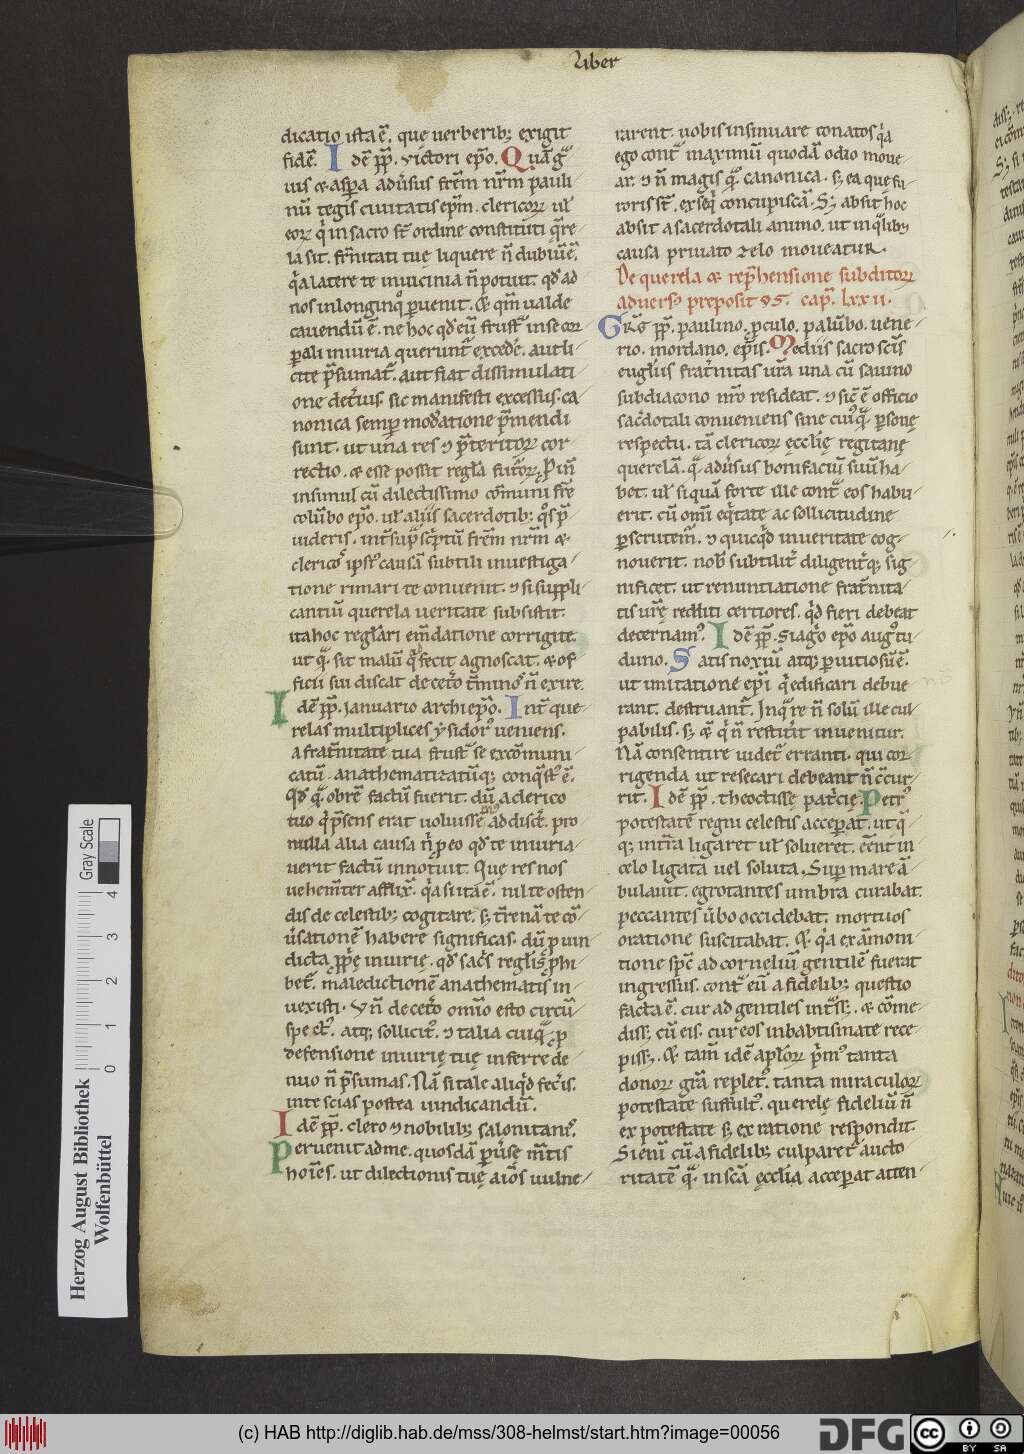 Liber
dicatio ista ē. que uerberib; exigit
fidē. I dē p̄p̄. victori ep̄o. Quā g̃
uis & asp̲a adūsus frēm nr̄m pauli
nū tegis ciuitatis ep̄m. clericoꝝ ul̄
eoꝝ q̇ in sacro st̄ ordine constituti q̄re
la sit. fr̄nitati tuę liquere n̄ dubiū ē.
q̇a latere te in uicinia n̄ potuit. qd̄ ad
nos in longinq̊ p̲uenit. & qm̄ ualde
cauendū ē. ne hoc qd̄ eū frustr̄ inseq̄
p̲ali iniuria querunt̄ excedē. aut li
cite p̄sumat̄. aut fiat dissimulati
one det̄ius. sic manifesti excessus. ca
nonica semp̲ mod̄atione p̄mendi
sunt. ut una res & p̄teritoꝝ cor
rectio. & esse possit regl̄a fut̄oꝝ. Proin̄
insimul cū dilectissimo cōmuni frē
colūbo ep̄o. ul̄ aliis sacerdotib; q̊s p̄
uideris. int̄sup̲ sc̄ptū frēm nr̄m &
clerico ipsi causā subtili inuestiga
tione rimari te conuenit. & si suppli
cantiū querela ueritate subsistit.
ita hoc regl̄ari em̄datione corrigite.
ut q̃. sit malū q̊ fecit agnoscat. & of
ficii sui discat de cet̄o t̄minos n̄ exire.
I dē p̄p̄. Ianuario archiep̄o. Int̄ que
relas multiplices ysidorꝰ ueniens.
a frat̄nitate tua frustr̄ se excōmuni
catū. anathematizatūq; conq̄stꝰ ē.
Qd̄ q̃. ob rē factū fuerit. dū a clerico
tuo q̇ p̄sens erat uoluissemꝰ addisc̄e. pro
nulla alia causa n̄ p̲ eo qd̄ te iniuria
uerit factū innotuit. Que res nos
uehemēter afflix̄. q̇a si ita ē. nil te osten
dis de celestib; cogitare. s; t̄renā te cō
ūsationē habere significas. dū p̲ uin
dicta p̲p̲ę iniurię. qd̄ sacris regl̄is p̲hi
bet̄. maledictionē anathematis in
uexisti. Vn̄ de cet̄o omīo esto circū
spectꝰ. atq; sollicitꝰ. & talia cuiq̄ p̲
defensione iniurię tuę inferre de
nuo n̄ p̄sumas. Nā si tale aliq̇d fec̄is.
in te scias postea uindicandū.
I dē p̄p̄. clero & nobilib; salonitanis.
Peruenit ad me. quosdā p̲ūse m̄tis
hoīes. ut dilectionis tuę aīos uulne
rarent. uobis insinuare conatos q̇a
ego cont̄ maximū quodā odio moue
ar. & n̄ magis q̃. canonica. s; ea que fu
roris st̄. exseq̇ concupiscā. S; absit hoc
absit a sacerdotali animo. ut in q̇lib;
causa priuato zelo moueatur.
De querela & rep̄hensione subditoꝝ
aduersꝰ prepositos. cap̄. lxxii.
Greg̃ p̄p̄. paulino. p̲culo. palūbo. uene
rio. mordano. ep̄is. Mediis sacroscīs
euglīis frat̄nitas ur̄a una cū sauino
subdiacono nr̄o resideat. & sic̄ ē officio
sac̄dotali conueniens sine cuiꝰq̃. p̲sonę
respectu. tā clericoꝝ ęcclię regitanę
querelā. q̃. adūsus bonifaciū suū ha
bet. ul̄ si quā forte ille cont̄ eos habu
erit. cū om̄i eq̇tate ac sollicitudine
p̲scrutem̄. & quicq̇d in ueritate cog
nouerit. nob̄ subtilit̄ diligent̄q; sig
nificet. ut renuntiatione frat̄nita
tis ur̄ę redditi certiores. q̇d fieri debeat
decernamꝰ. I dē p̄p̄. Siagrio ep̄o augꝰtu
duno. Satis noxiū atq; p̲uitiosū ē.
ut unitatione ep̄i q̇ edificari debue
rant. destruant̄. Inq̇re n̄ solū ille cul
pabilis. s; & q̇ n̄ restit̄it inuenitur.
Nā consentire uidet̄ erranti. qui cor
rigenda ut resecari debeant n̄ c̄cur
rit. I dē p̄p̄. theoctistę pat̄cię. Petrꝰ
potestatē regni celestis acceperat. ut q̄
q; in tr̄ra ligaret ul̄ solueret. cēnt in
celo ligata uel soluta. Sup̲ mare ā
bulauit. egrotantes umbra curabat.
peccantes ūbo occidebat. mortuos
oratione suscitabat. &. q̇a ex āmoni
tione sp̄c ad corneliū gentilē fuerat
ingressus. cont̄ eū a fidelib; questio
facta ē. cur ad gentiles int̄ss;. & cōme
diss; cū eis. cur eos in babtismate rece
piss;. &. tam̄ idē ap̄loꝝ p̄mꝰ tanta
donoꝝ gr̄a repletꝰ. tanta miraculoꝝ
potestate suffultꝰ. querelę fideliū n̄
ex potestate s; ex ratione respondit.
Si enī cū a fidelib; culparet̄ aucto
ritatē q̃. in scā ęcclia acceperat atten
Gray Scale
0 1 2 3 4
Herzog August Bibliothek
Wolfenbüttel
(c) HAB http://diglib.hab.de/mss/308-helmst/start.htm?image=00056
DFG
cc
BY SA